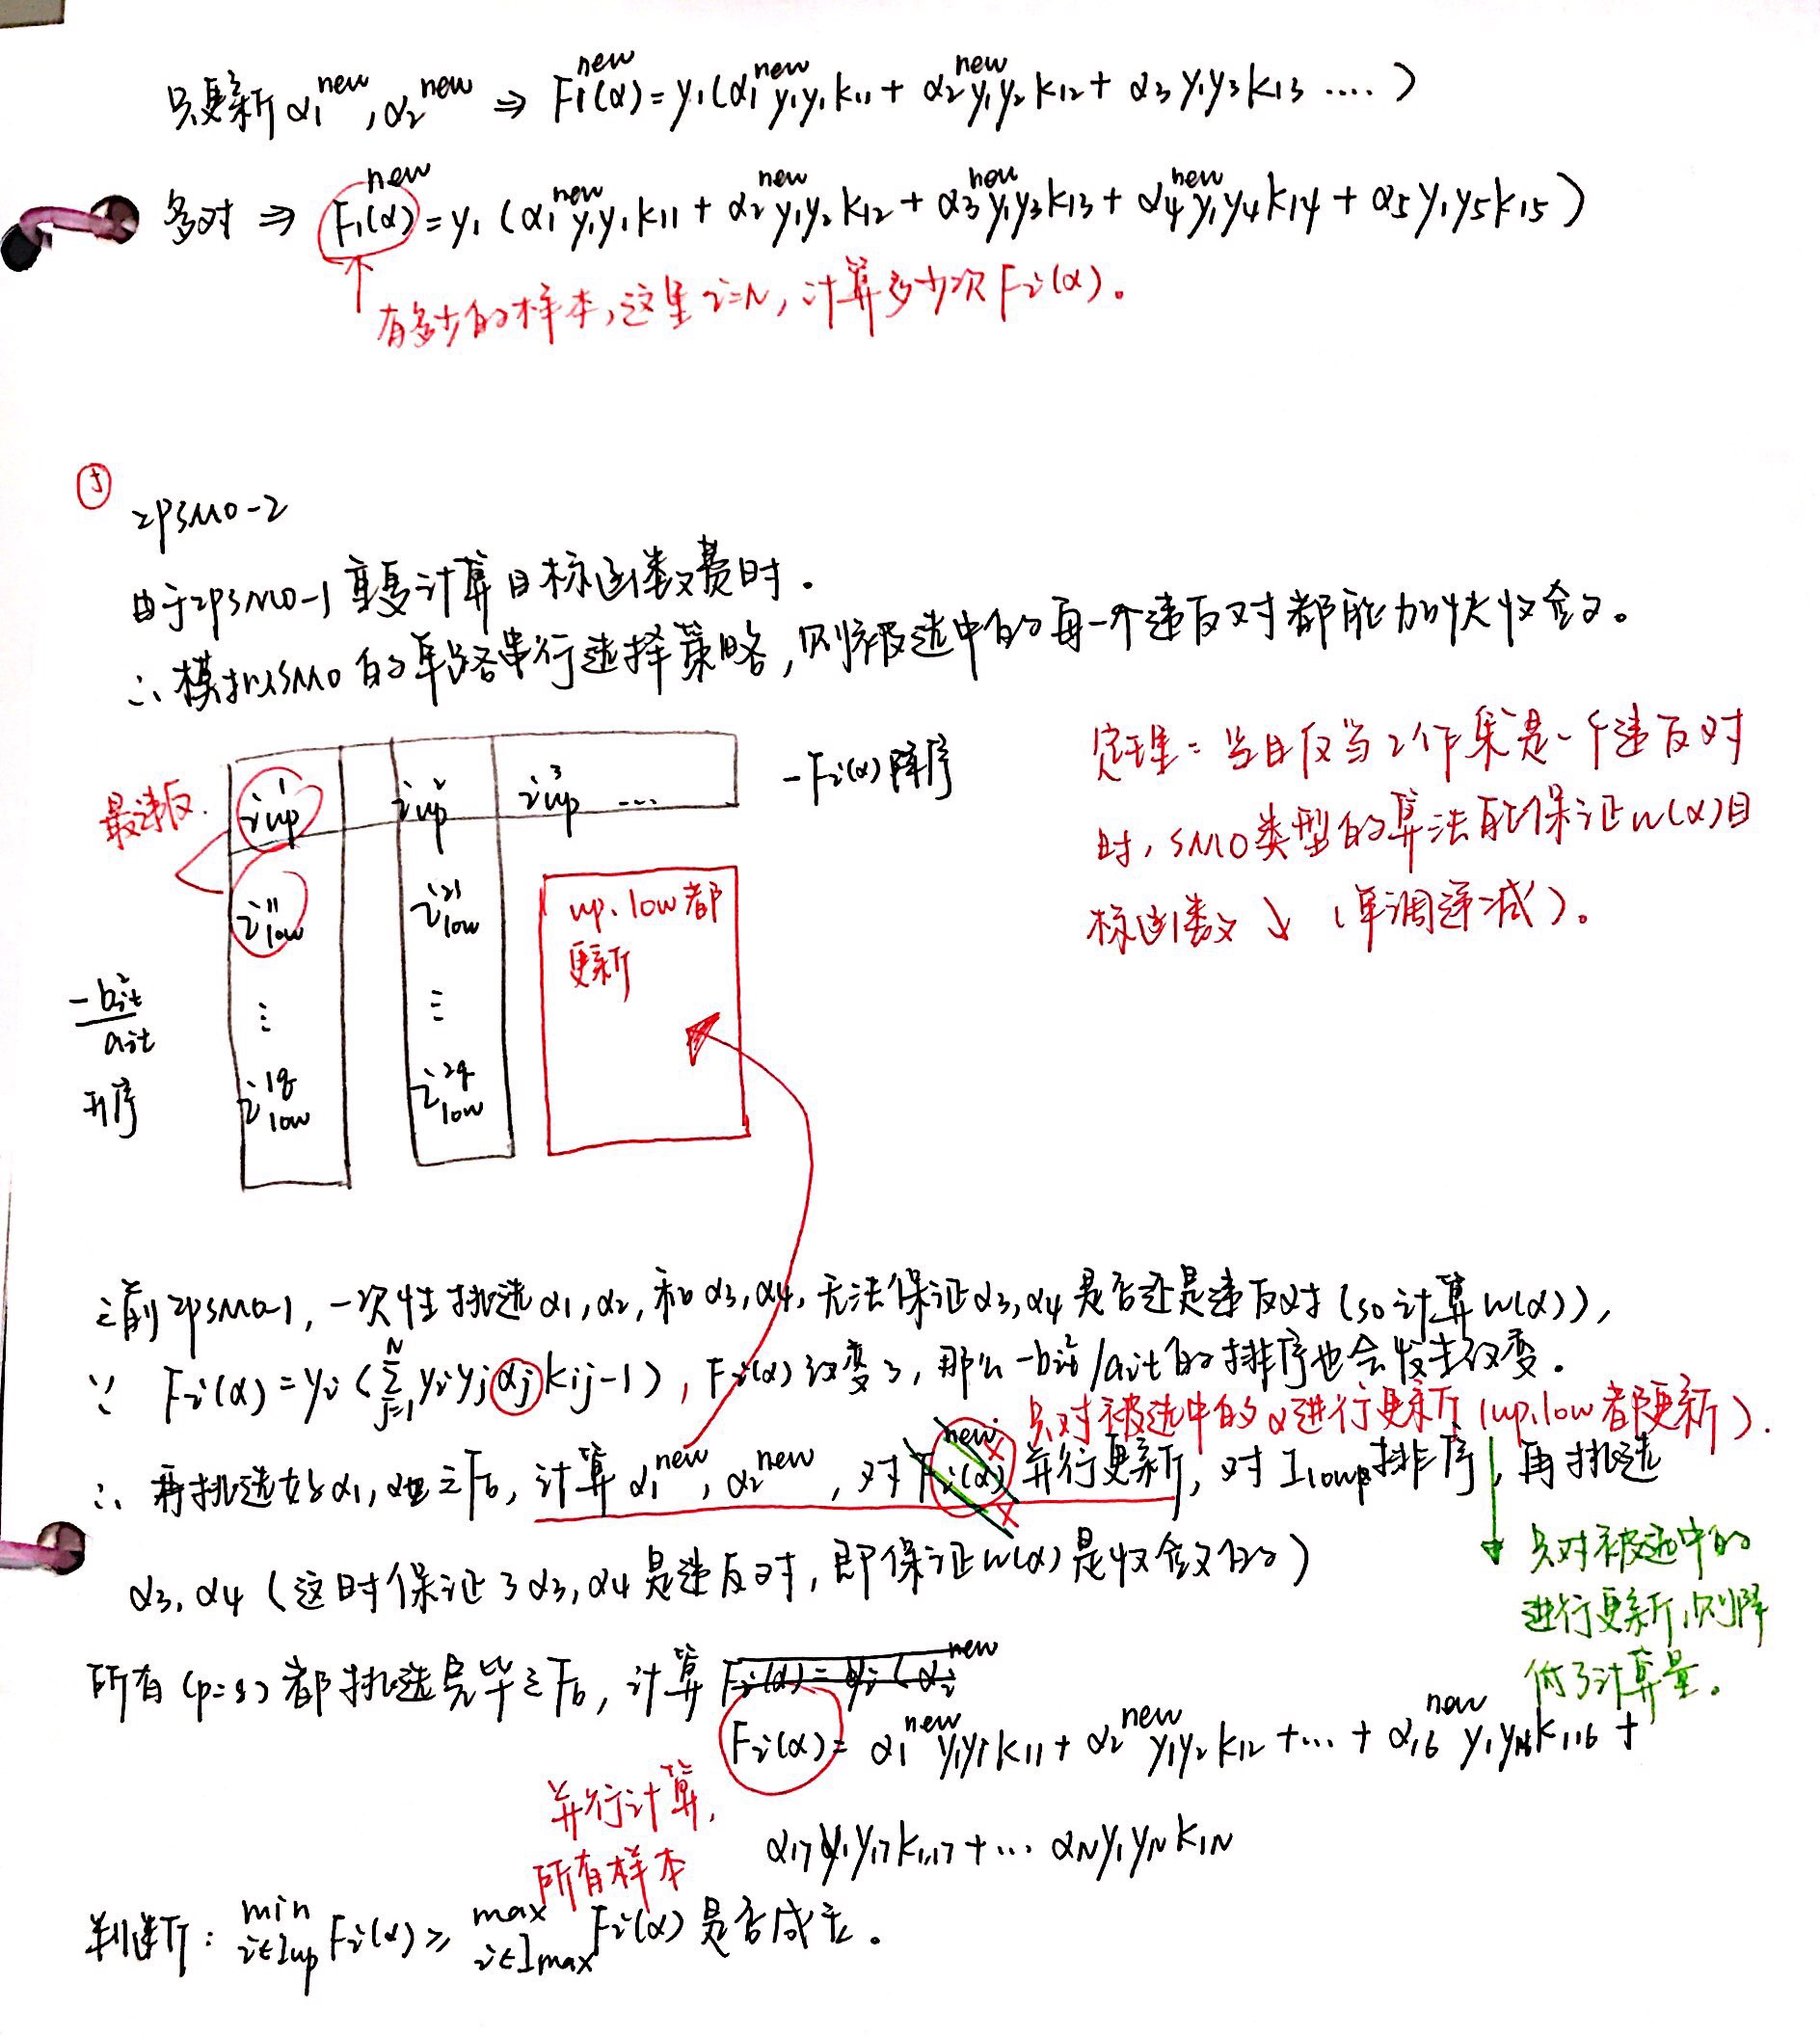 只更新 α₁^new, α₂^new ⇒ F₁^new(α) = y₁(α₁^new y₁y₁k₁₁ + α₂^new y₁y₂k₁₂ + α₃y₁y₃k₁₃ ....)
多对 ⇒ F₁^new(α) = y₁(α₁^new y₁y₁k₁₁ + α₂^new y₁y₂k₁₂ + α₃^new y₁y₃k₁₃ + α₄^new y₁y₄k₁₄ + α₅y₁y₅k₁₅)
有多少的样本，这里 i=N，计算多少次 Fi(α)。
⑤
ZPSMO-2
由于ZPSMO-1 重复计算目标函数费时.
∴ 模拟SMO的单路串行选择策略，则被选中的每一个违反对都能加快收敛。
最违反.
i¹up
i²up
i³up ....
-Fi(α)降序
i¹¹low
i²¹low
⋮
⋮
i^1q low
i^2q low
-b²it/ait
升序
up、low都
更新
定理：当且仅当工作集是一个违反对
时，SMO类型的算法能保证W(α)目
标函数↓（单调递减）。
之前ZPSMO-1，一次性挑选α₁,α₂,和α₃,α₄,无法保证α₃,α₄是否还是违反对(so计算W(α)),
∵ Fi(α) = yi(∑_{j=1}^{N} yiyjαjkij-1), Fi(α)改变了，那么-b²it/ait的排序也会发生改变.
只对被选中的α进行更新(up.low都更新).
∴ 再挑选好α₁,α₂之后，计算α₁^new, α₂^new，对Fi^new(α)并行更新，对Ilow排序，再挑选
α₃,α₄（这时保证了α₃,α₄是违反对，即保证W(α)是收敛的）
只对被选中的
进行更新，则降
低了计算量。
所有(p=8)都挑选完毕之后，计算 Fi(α)=yi(αi^new
Fi(α) = α₁^new y₁y₁k₁₁ + α₂^new y₁y₂k₁₂ + ... + α₁₆^new y₁y₁₆k₁,₁₆ +
α₁₇y₁y₁₇k₁,₁₇ + ... αNy₁yNk₁N
并行计算,
所有样本
判断：min_{i∈Iup} Fi(α) ≥ max_{i∈Imax} Fi(α) 是否成立。